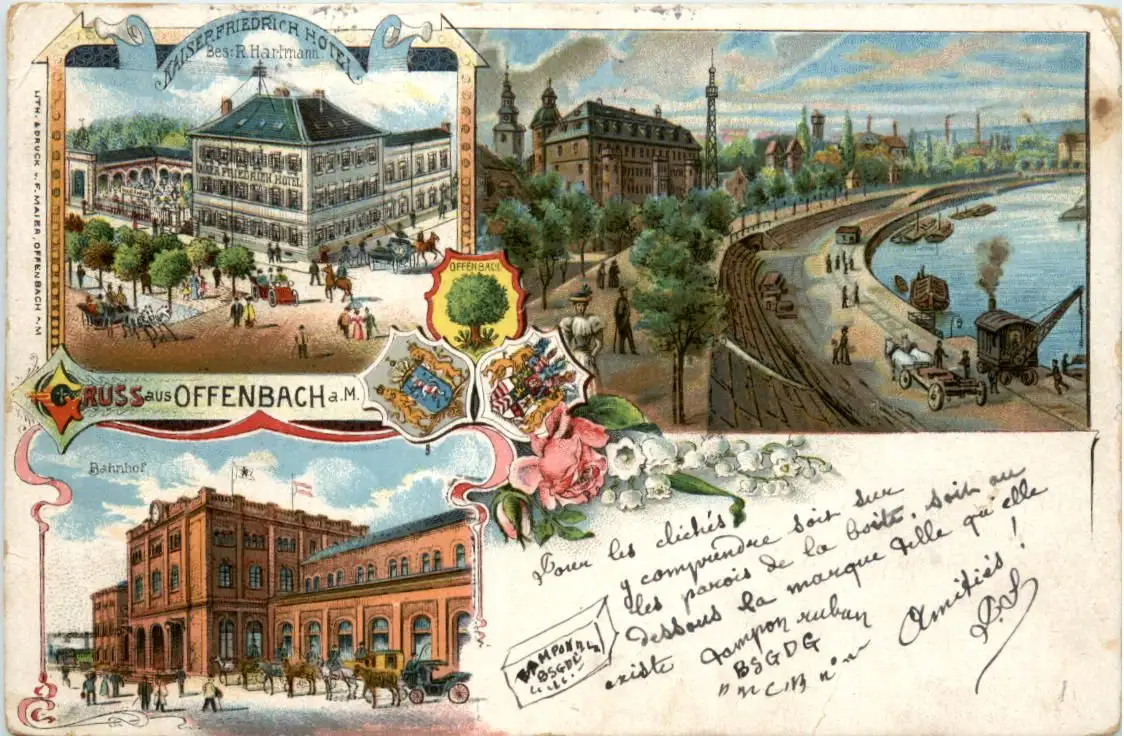 KAISER FRIEDRICH HOTEL
Bes: R. Hartmann
KAISER FRIEDRICH HOTEL
LITH. & DRUCK v. F. MAIER, OFFENBACH a. M
OFFENBACH
GRUSS aus OFFENBACH a. M.
Bahnhof
Pour les clichés
y comprendre soit sur
les parois de la boîte, soit au
dessous la marque telle qu'elle
existe Tampon ruban !
BSGDG
Amitiés
TAMPON
BSGDG